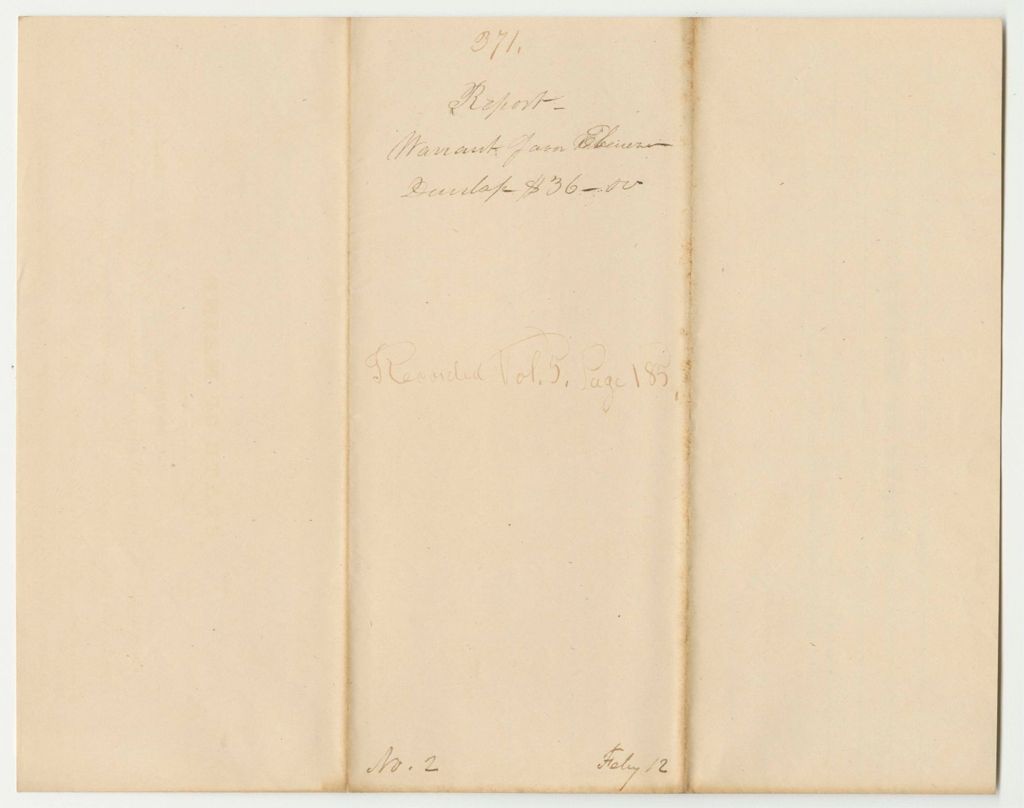 371.
Report-
Warrant favor Ebenezer
Dunlap $36-00
Recorded Vol. 5. Page 185,
No. 2 Feby 12